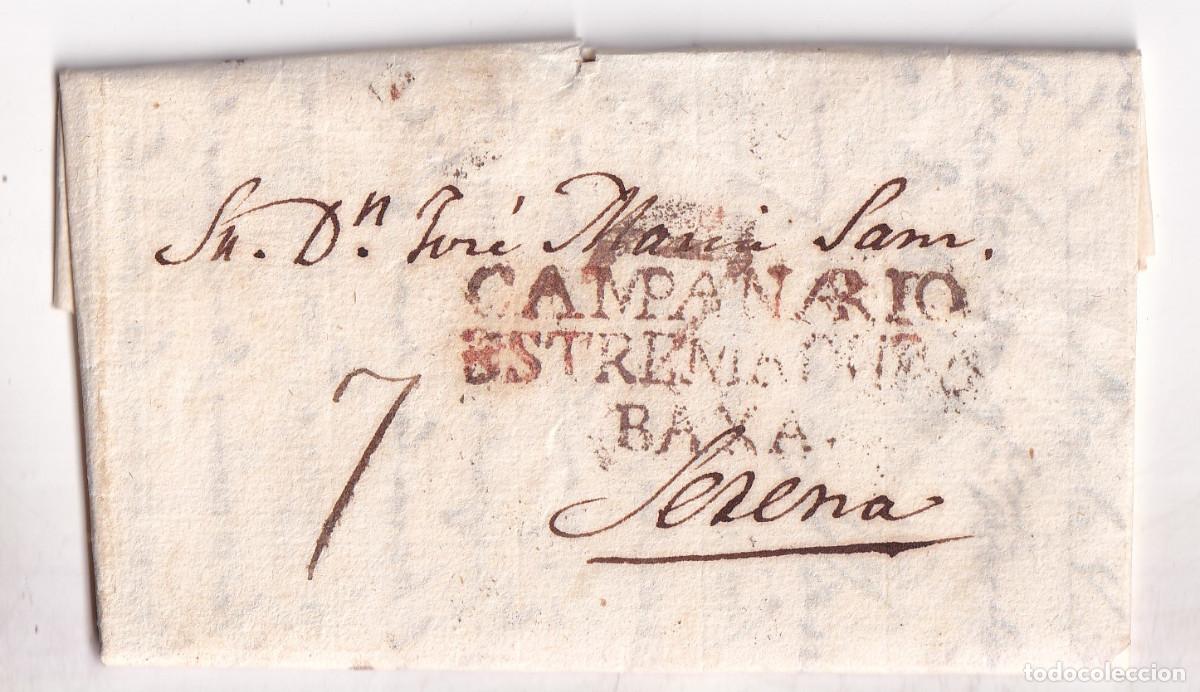 Sr. Dn. José Maria Sanr.
CAMPANARIO
ESTREMADURA
BAXA.
7
Serena
todocoleccion